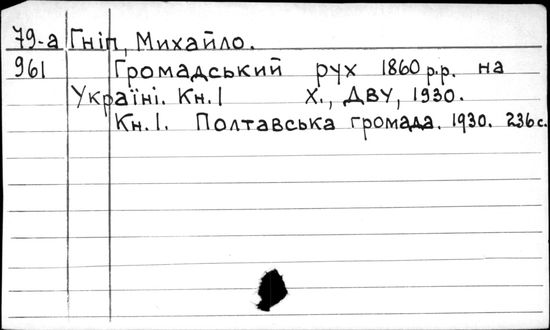 79-а Гніп, Михайло.
961 Громадський рух 1860 р.р. на
Україні. Кн. 1 Х., ДВУ, 1930.
Кн. 1. Полтавська громада. 1930. 236 с.